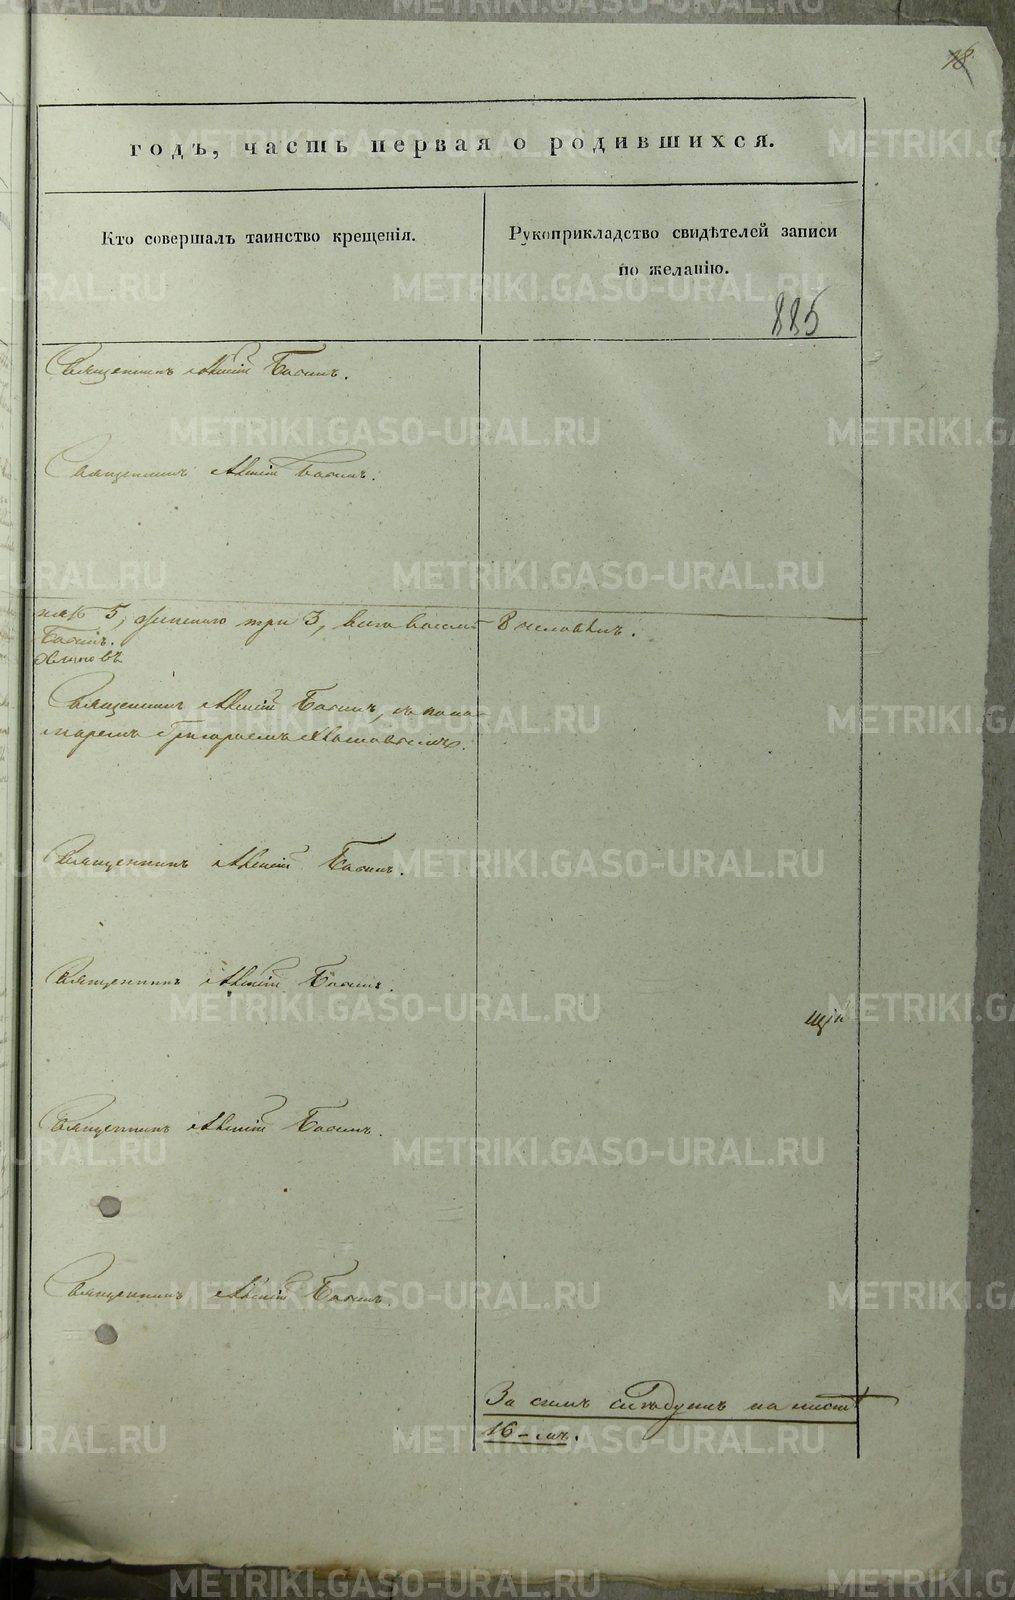 18
годъ, часть первая о родившихся.
Кто совершалъ таинство крещенія.
Рукоприкладство свидѣтелей записи
по желанію.
885
Священникъ Алексій Басинъ.
Священникъ Алексій Басинъ.
5, женскаго три 3, всего восемь 8 человѣкъ.
Басинъ.
Священникъ Алексій Басинъ, съ поно-
маремъ Григоріемъ
Священникъ Алексій Басинъ.
Священникъ Алексій Басинъ.
Священникъ Алексій Басинъ.
Священникъ Алексій Басинъ.
За симъ слѣдуетъ на листѣ
16-мъ.
METRIKI.GASO-URAL.RU